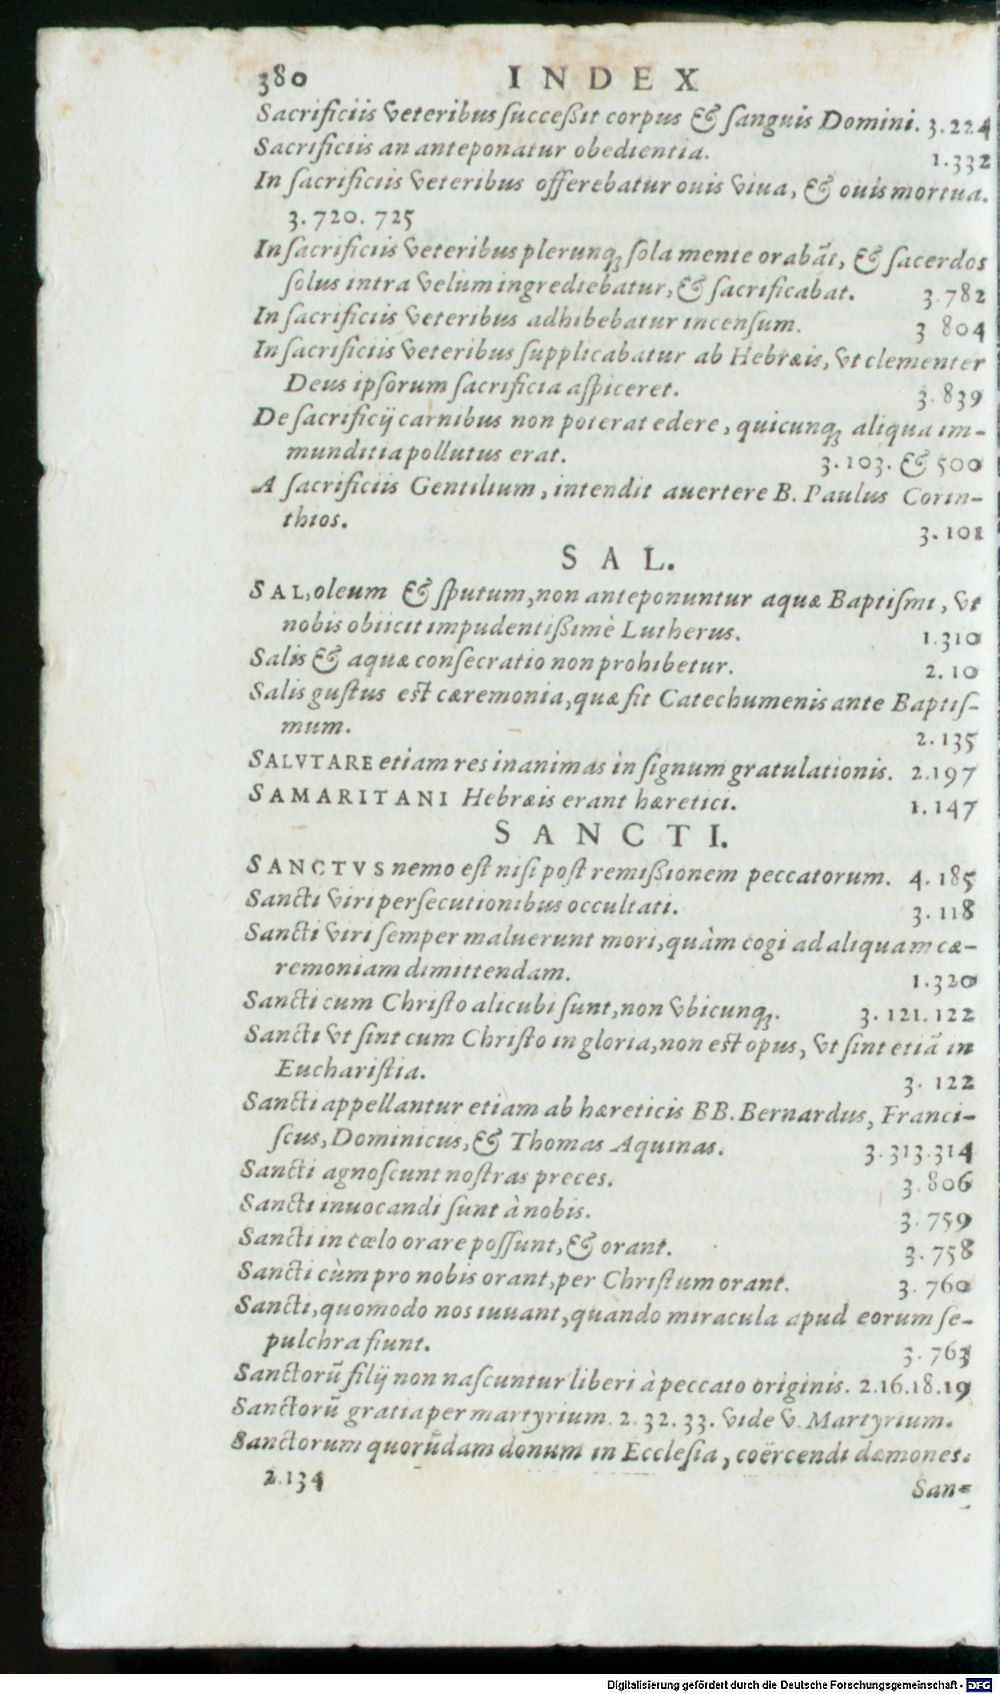 380 INDEX
Sacrificiis veteribus succeßit corpus & sanguis Domini. 3.224
Sacrificiis an anteponatur obedientia. 1.332
In sacrificiis veteribus offerebatur ouis viua, & ouis mortua.
3. 720. 725
In sacrificiis veteribus plerunq; sola mente orabãt, & sacerdos
solus intra velum ingrediebatur, & sacrificabat. 3.782
In sacrificiis veteribus adhibebatur incensum. 3 804
In sacrificiis veteribus supplicabatur ab Hebræis, vt clementer
Deus ipsorum sacrificia aspiceret. 3.839
De sacrificij carnibus non poterat edere, quicunq; aliqua im-
munditia pollutus erat. 3.103. & 500
A sacrificiis Gentilium, intendit auertere B. Paulus Corin-
thios. 3.101
SAL.
SAL, oleum & sputum, non anteponuntur aquæ Baptismi, vt
nobis obiicit impudentißimè Lutherus. 1.310
Salis & aquæ consecratio non prohibetur. 2.10
Salis gustus est cæremonia, quæ fit Catechumenis ante Baptis-
mum. 2.135
SALVTARE etiam res inanimas in signum gratulationis. 2.197
SAMARITANI Hebræis erant hæretici. 1.147
SANCTI.
SANCTVS nemo est nisi post remißionem peccatorum. 4.185
Sancti viri persecutionibus occultati. 3.118
Sancti viri semper maluerunt mori, quàm cogi ad aliquam cæ-
remoniam dimittendam. 1.320
Sancti cum Christo alicubi sunt, non vbicunq;. 3.121.122
Sancti vt sint cum Christo in gloria, non est opus, vt sint etiã in
Eucharistia. 3. 122
Sancti appellantur etiam ab hæreticis BB. Bernardus, Franci-
scus, Dominicus, & Thomas Aquinas. 3.313.314
Sancti agnoscunt nostras preces. 3.806
Sancti inuocandi sunt à nobis. 3.759
Sancti in cœlo orare possunt, & orant. 3.758
Sancti cùm pro nobis orant, per Christum orant. 3.760
Sancti, quomodo nos iuuant, quando miracula apud eorum se-
pulchra fiunt. 3.763
Sanctorũ filij non nascuntur liberi à peccato originis. 2.16.18.19
Sanctorũ gratia per martyrium. 2. 32. 33. vide v. Martyrium.
Sanctorum quorũdam donum in Ecclesia, coërcendi dæmones.
2.134
San-
Digitalisierung gefördert durch die Deutsche Forschungsgemeinschaft - DFG